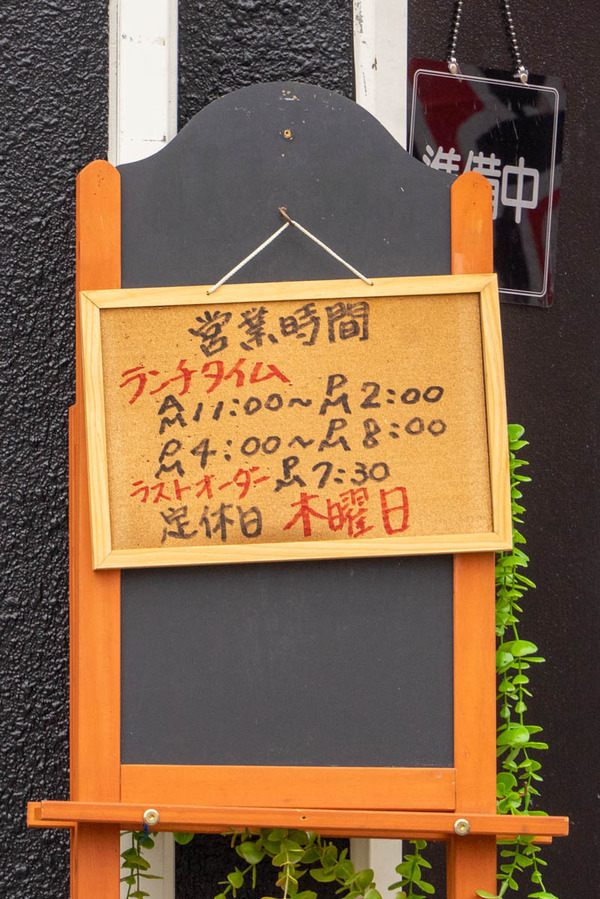 準備中
営業時間
ランチタイム
AM 11:00～PM 2:00
PM 4:00～PM 8:00
ラストオーダー PM 7:30
定休日 木曜日